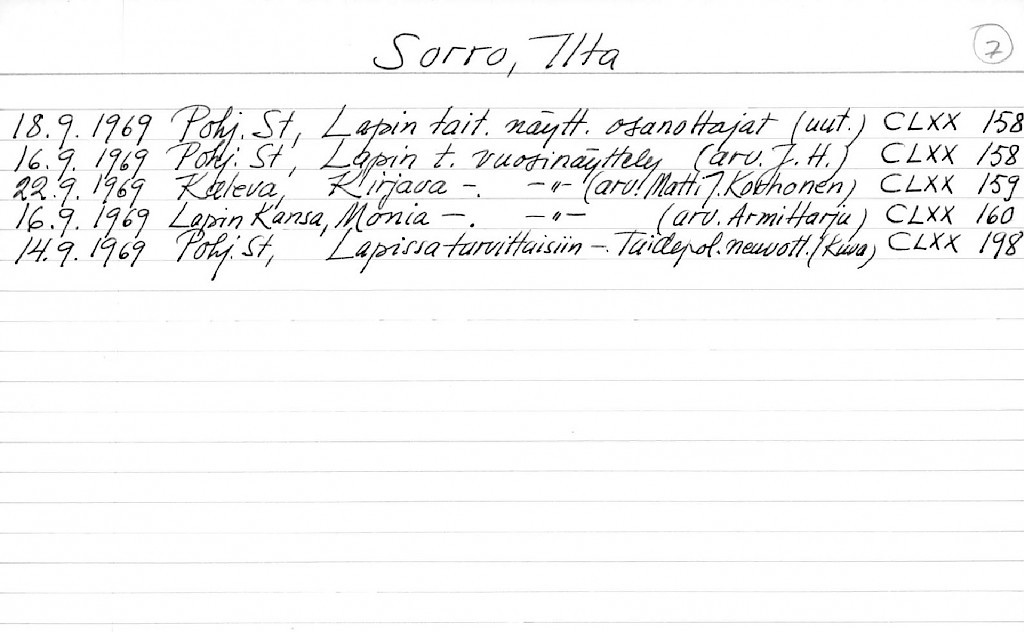 Sorro, Ilta 7
18.9.1969 Pohj. St, Lapin tait. näytt. osanottajat (uut.) CLXX 158
16.9.1969 Pohj. St, Lapin t. vuosinäyttely (arv. J.H.) CLXX 158
22.9.1969 Kaleva, Kirjava –. –"– (arv. Matti J. Korhonen) CLXX 159
16.9.1969 Lapin Kansa, Monia –. –"– (arv. Armi Harju) CLXX 160
14.9.1969 Pohj. St, Lapissa turvittaisiin –. Taidepol. neuvott. (kuva) CLXX 198